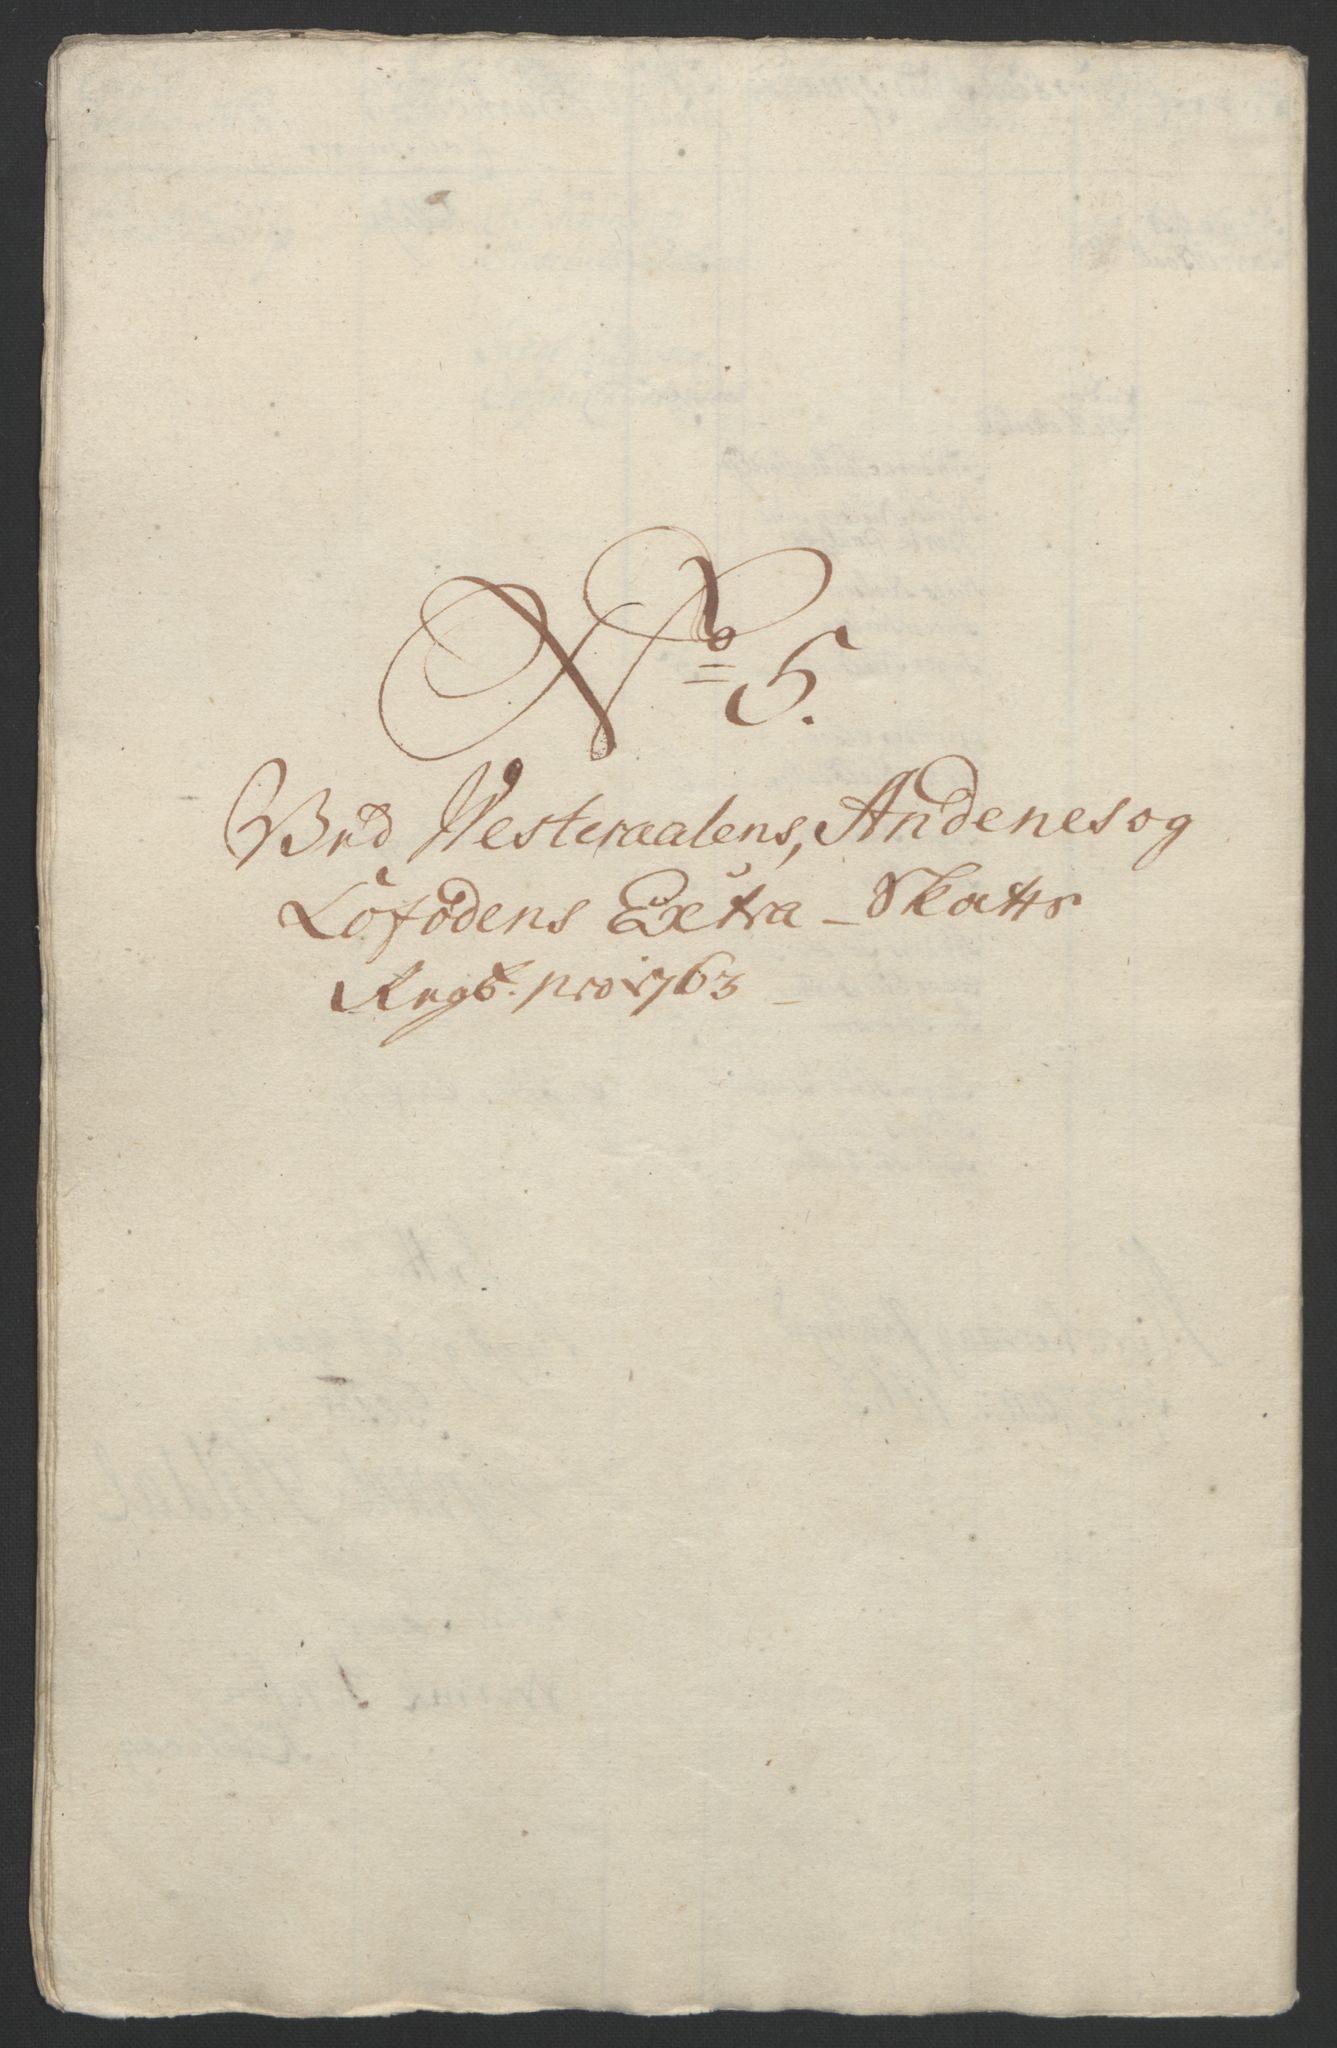 No 5.
Ved Westeraalens, Andenes og
Lofodens Extra-Skatts
Regsk. pro 1763